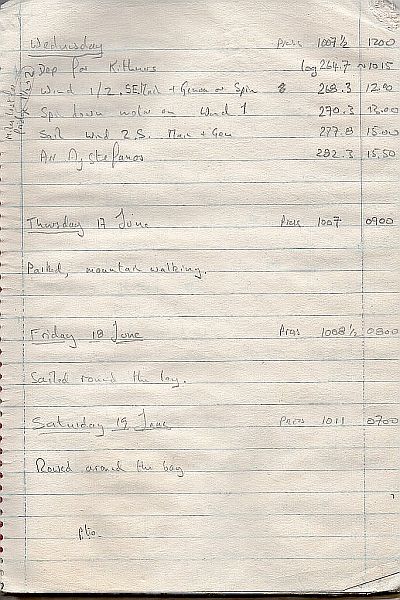 Wednesday Press 1007½ 1200
Dep for Kithnos log 264.7 ~ 1015
Wind 1/2. SE Main + Genoa or Spin 268.3 12.00
Spin down motor on Wind 1 270.3 13.00
Sail Wind 2.S. Main + Gen 277.8 15.00
Arr Ag Stefanos 282.3 15.50
Thursday 17 June Press 1007 0900
Painted, mountain walking.
Friday 18 June Press 1008½ 0800
Sailed round the bay.
Saturday 19 June Press 1011 0700
Rowed around the bay
pto